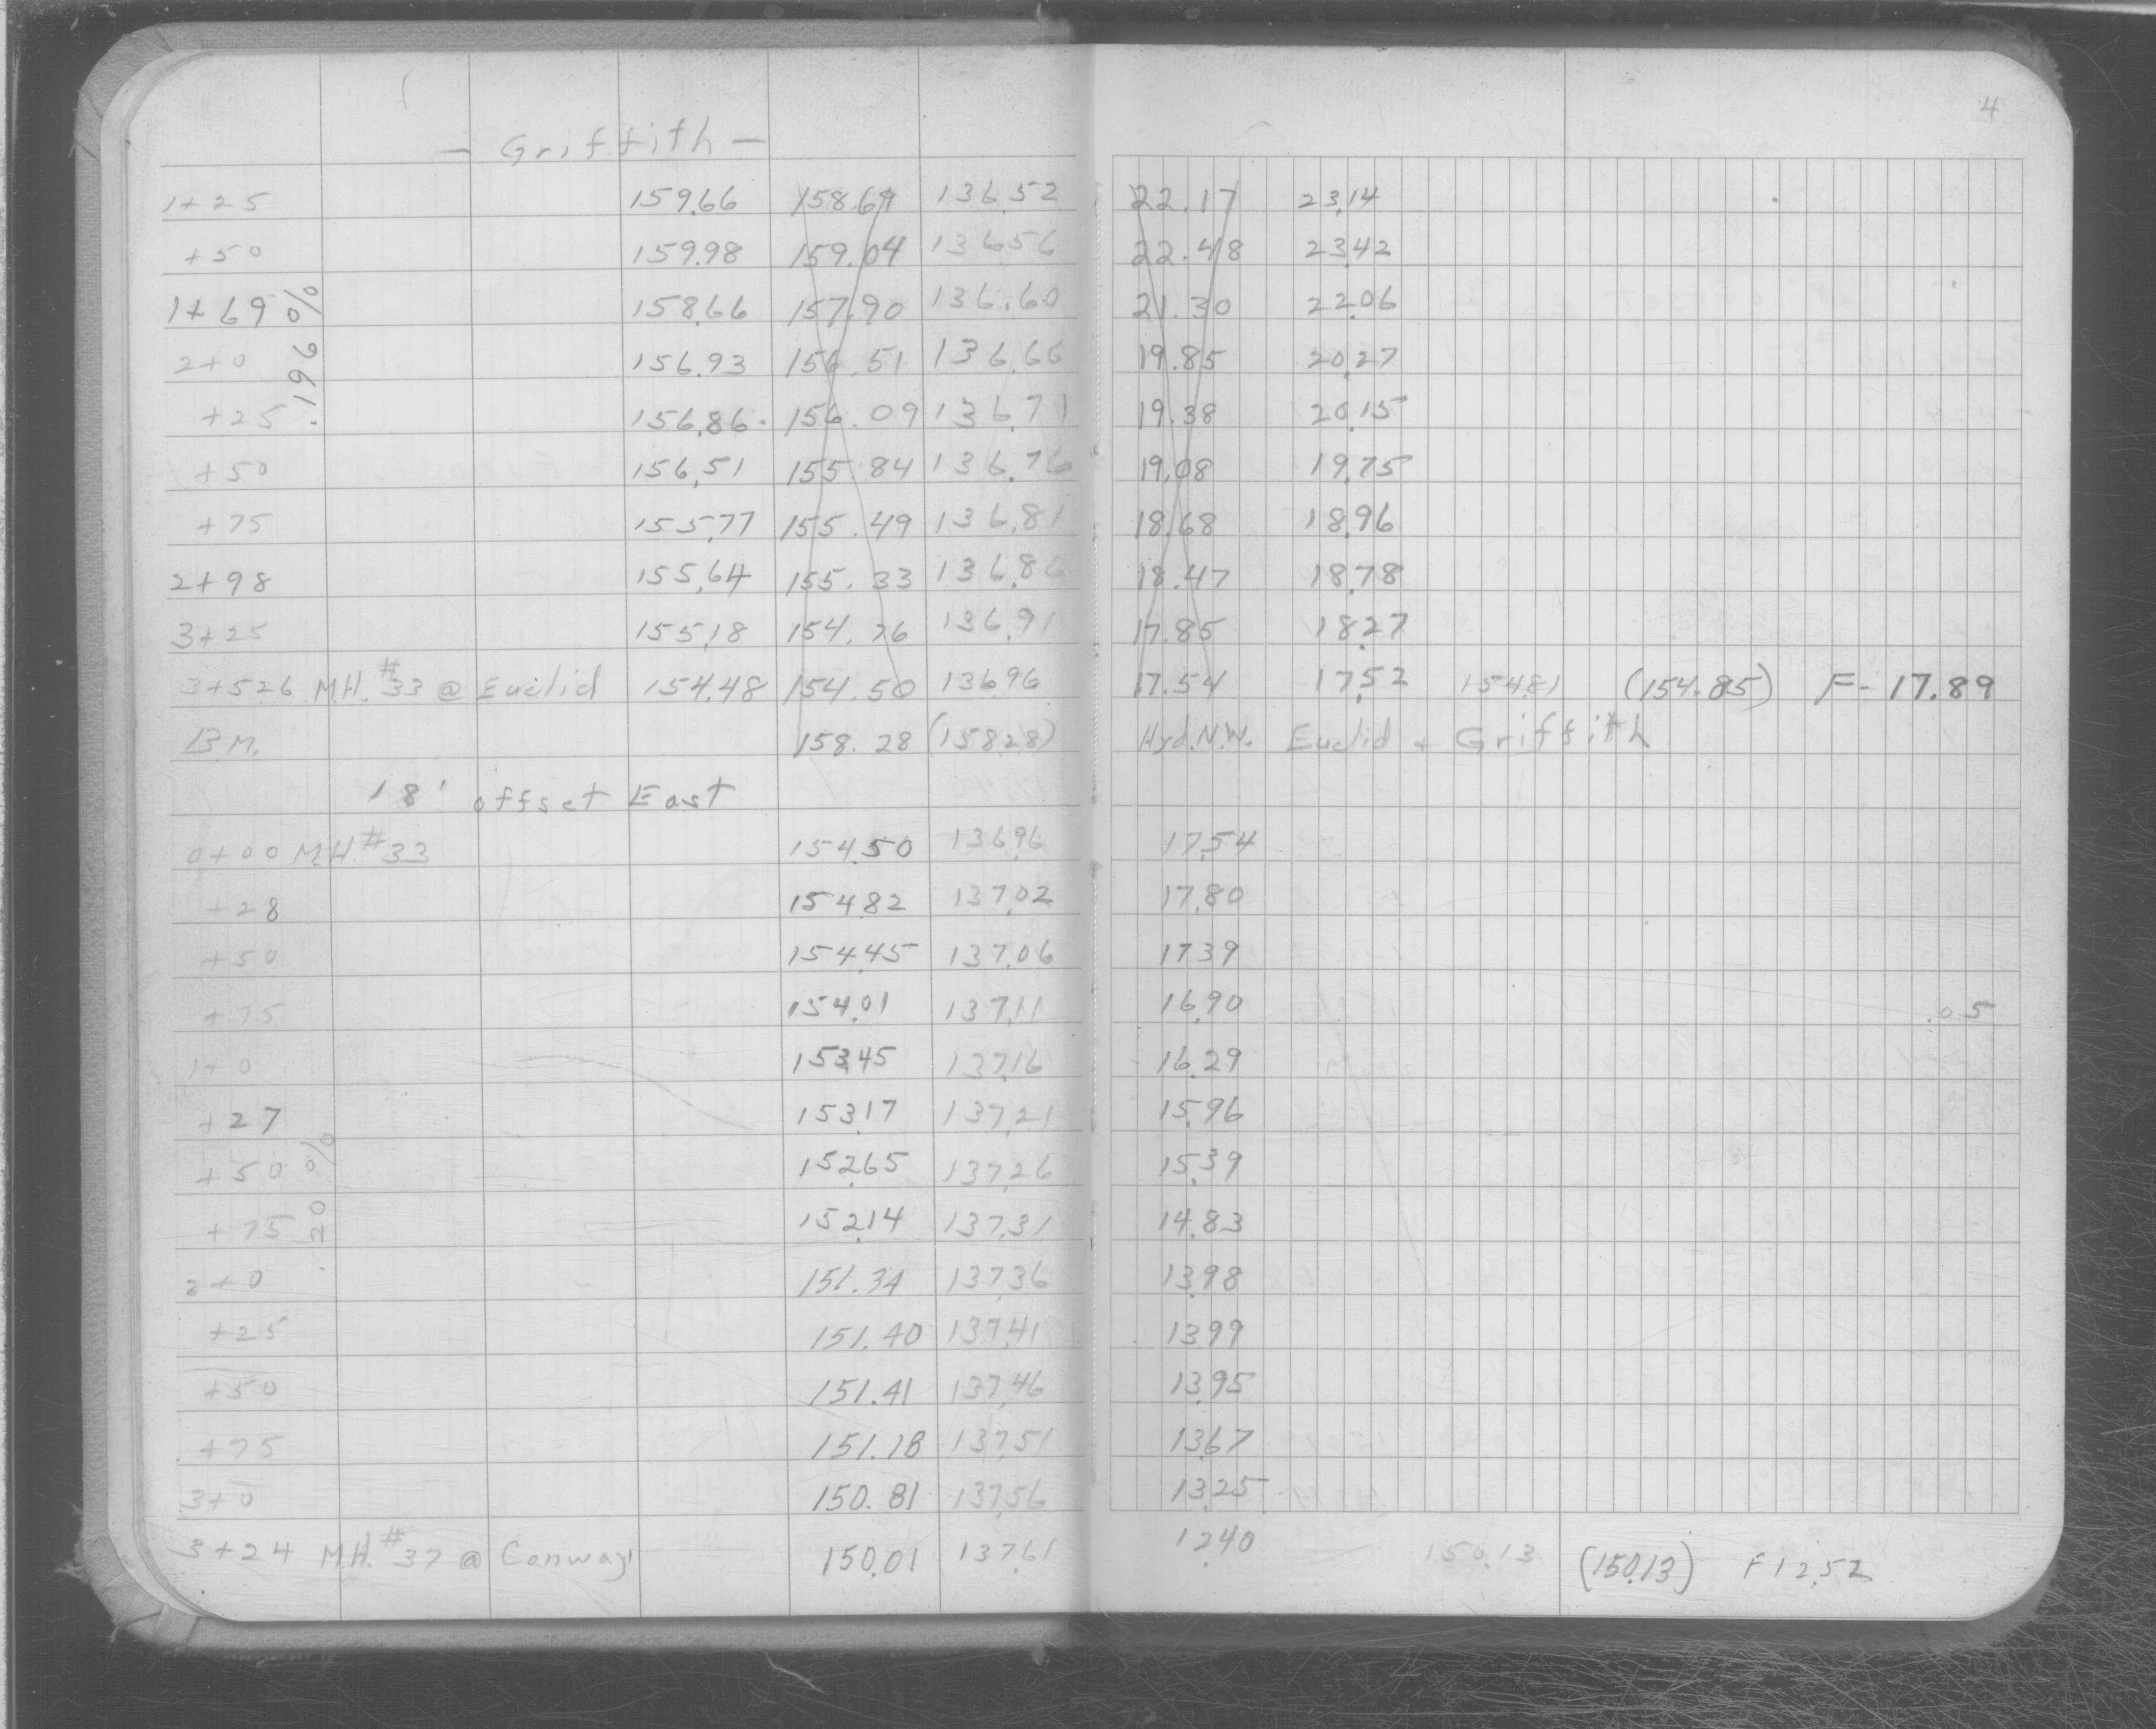 4
- Griffith -
1+25 159.66 158.69 136.52 22.17 23.14
+50 159.98 159.04 136.56 22.48 23.42
1+69 158.66 157.90 136.60 21.30 22.06
2+0 156.93 156.51 136.66 19.85 20.27
.196 %
+25 156.86 156.09 136.71 19.38 20.15
+50 156.51 155.84 136.76 19.08 19.75
+75 155.77 155.49 136.81 18.68 18.96
2+98 155.64 155.33 136.86 18.47 18.78
3+25 155.18 154.76 136.91 17.85 18.27
3+526 M.H. #33 @ Euclid 154.48 154.50 136.96 17.54 17.52 154.81 (154.85) F- 17.89
B.M. 158.28 (158.28) Hyd. N.W. Euclid + Griffith
18' offset East
0+00 M.H. #33 154.50 136.96 17.54
+28 154.82 137.02 17.80
+50 154.45 137.06 17.39
+75 154.01 137.11 16.90 .05
1+0 153.45 137.16 16.29
+27 153.17 137.21 15.96
+50 152.65 137.26 15.39
.20 %
+75 152.14 137.31 14.83
2+0 151.34 137.36 13.98
+25 151.40 137.41 13.99
+50 151.41 137.46 13.95
+75 151.18 137.51 13.67
3+0 150.81 137.56 13.25
3+24 M.H. #37 @ Conway 150.01 137.61 12.40 150.13 (150.13) F 12.52